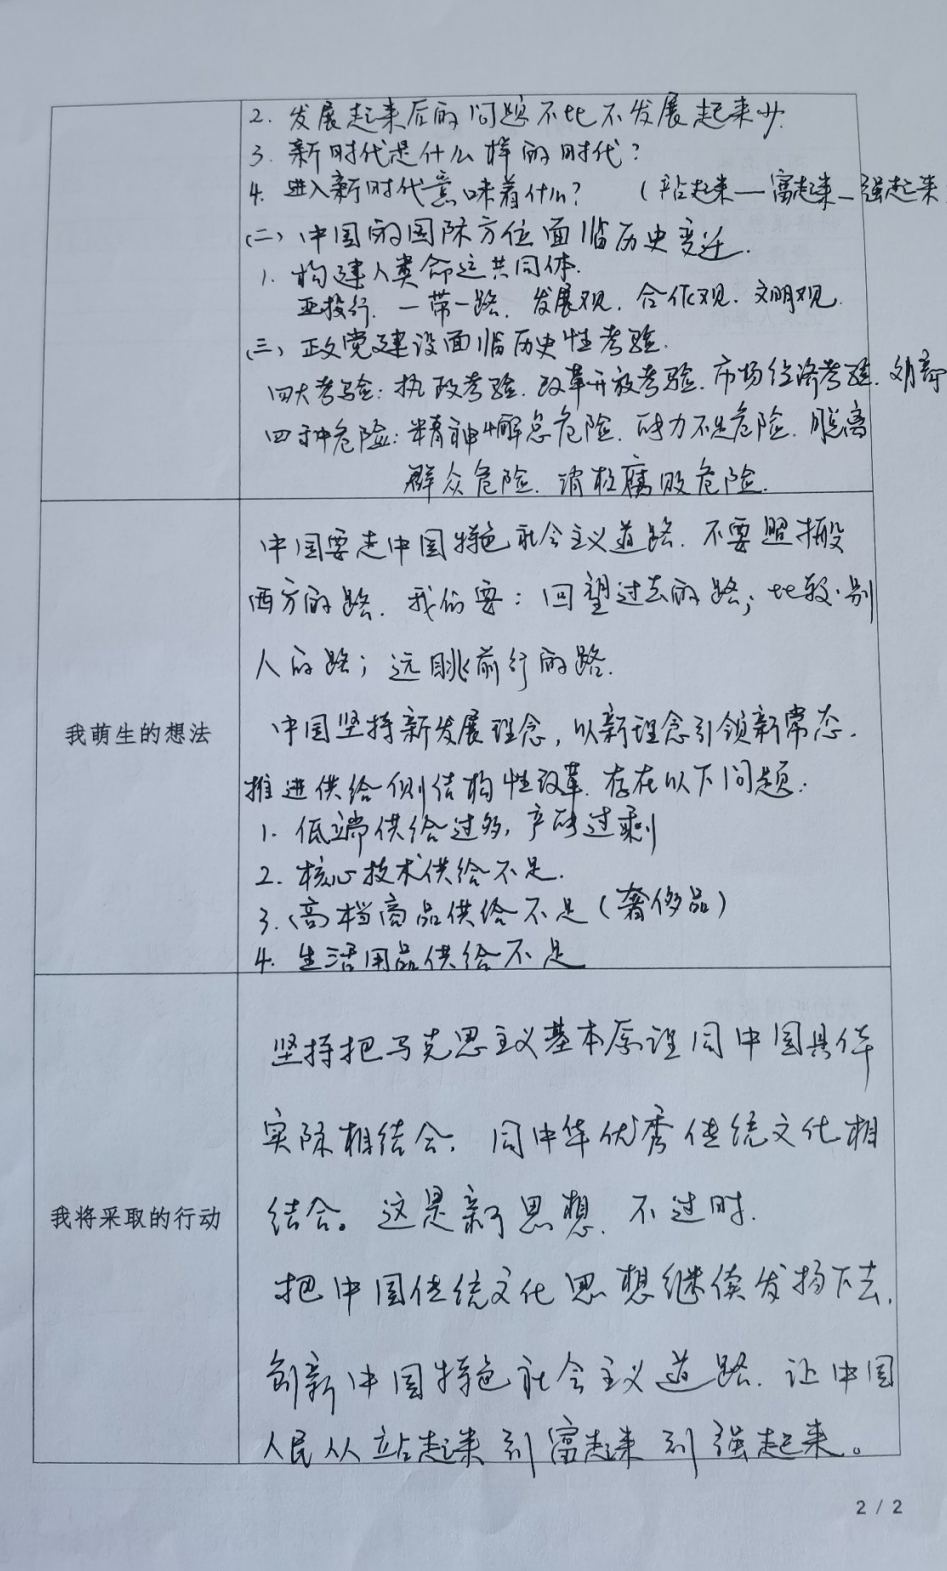 2. 发展起来后的问题不比不发展起来少.
3. 新时代是什么样的时代?
4. 进入新时代意味着什么? (站起来—富起来—强起来
(二) 中国的国际方位面临历史变迁.
1. 构建人类命运共同体.
亚投行. 一带一路. 发展观. 合作观. 文明观.
(三) 政党建设面临历史性考验.
四大考验: 执政考验. 改革开放考验. 市场经济考验. 外部
四种危险: 精神懈怠危险. 能力不足危险. 脱离
群众危险. 消极腐败危险.
中国要走中国特色社会主义道路. 不要照搬
西方的路. 我们要: 回望过去的路; 比较别
人的路; 远眺前行的路.
我萌生的想法
中国坚持新发展理念, 以新理念引领新常态.
推进供给侧结构性改革. 存在以下问题:
1. 低端供给过多, 产能过剩
2. 核心技术供给不足.
3. 高档商品供给不足 (奢侈品)
4. 生活用品供给不足
坚持把马克思主义基本原理同中国具体
实际相结合, 同中华优秀传统文化相
结合。这是新思想. 不过时.
我将采取的行动
把中国传统文化思想继续发扬下去.
创新中国特色社会主义道路. 让中国
人民从站起来到富起来到强起来。
2 / 2